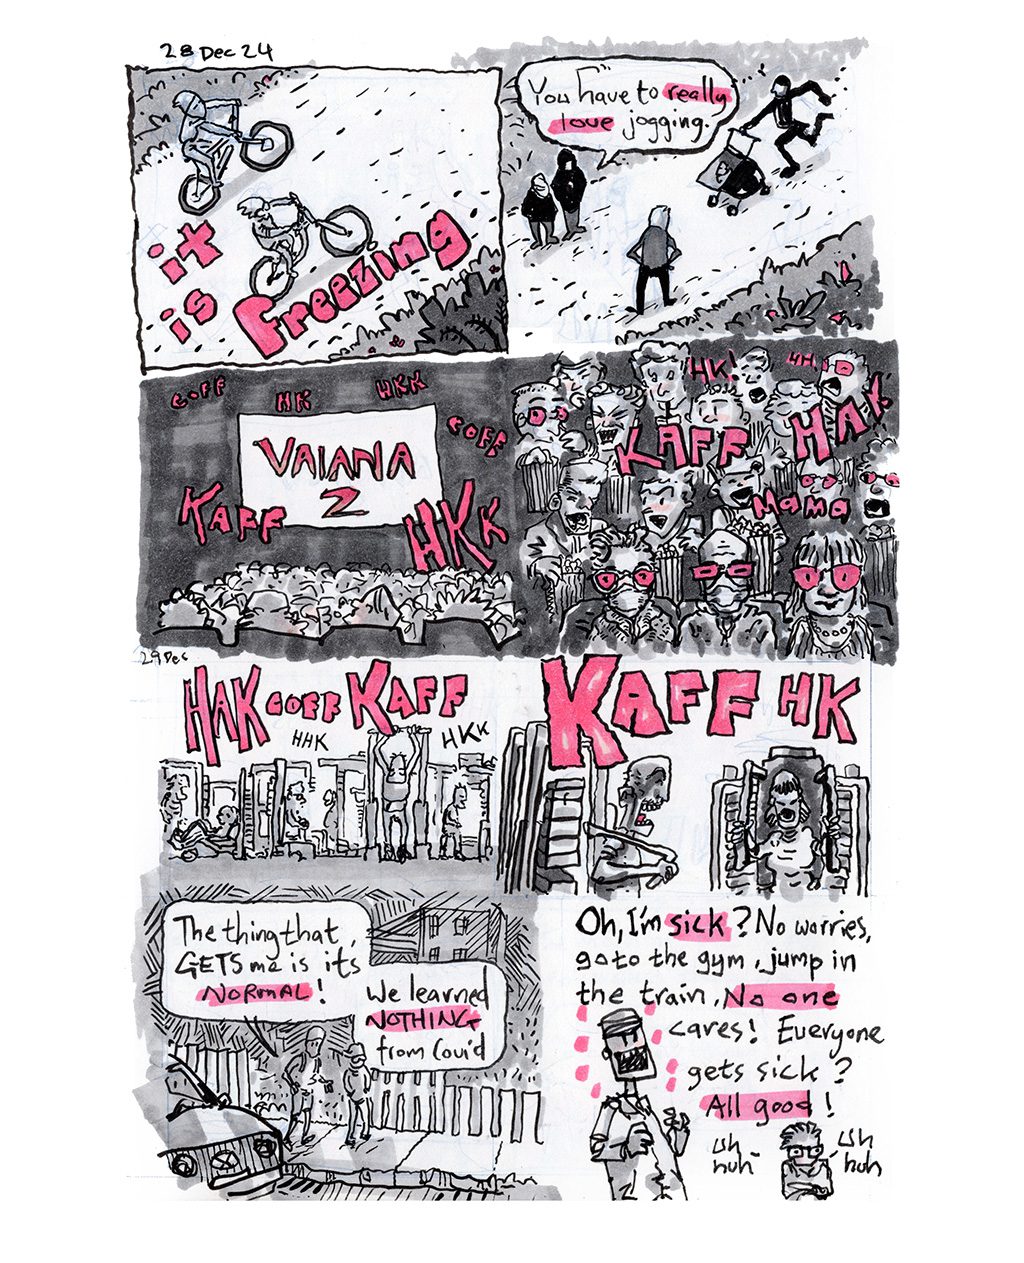 28 Dec 24
it
is Freezing
You have to really
love jogging.
COFF HK HKK
COFF
VAIANA
2
KAFF
HKK
HK!
HH
KAFF HAK
MaMa
29 Dec
HAK COFF KAFF
HHK
HKK
KAFF HK
The thing that
GETS me is its
NORMAL!
We learned
NOTHING
from Covid
Oh, I'm sick? No worries,
go to the gym, jump in
the train, No one
cares! Everyone
gets sick?
All good!
Uh
huh
Uh
huh